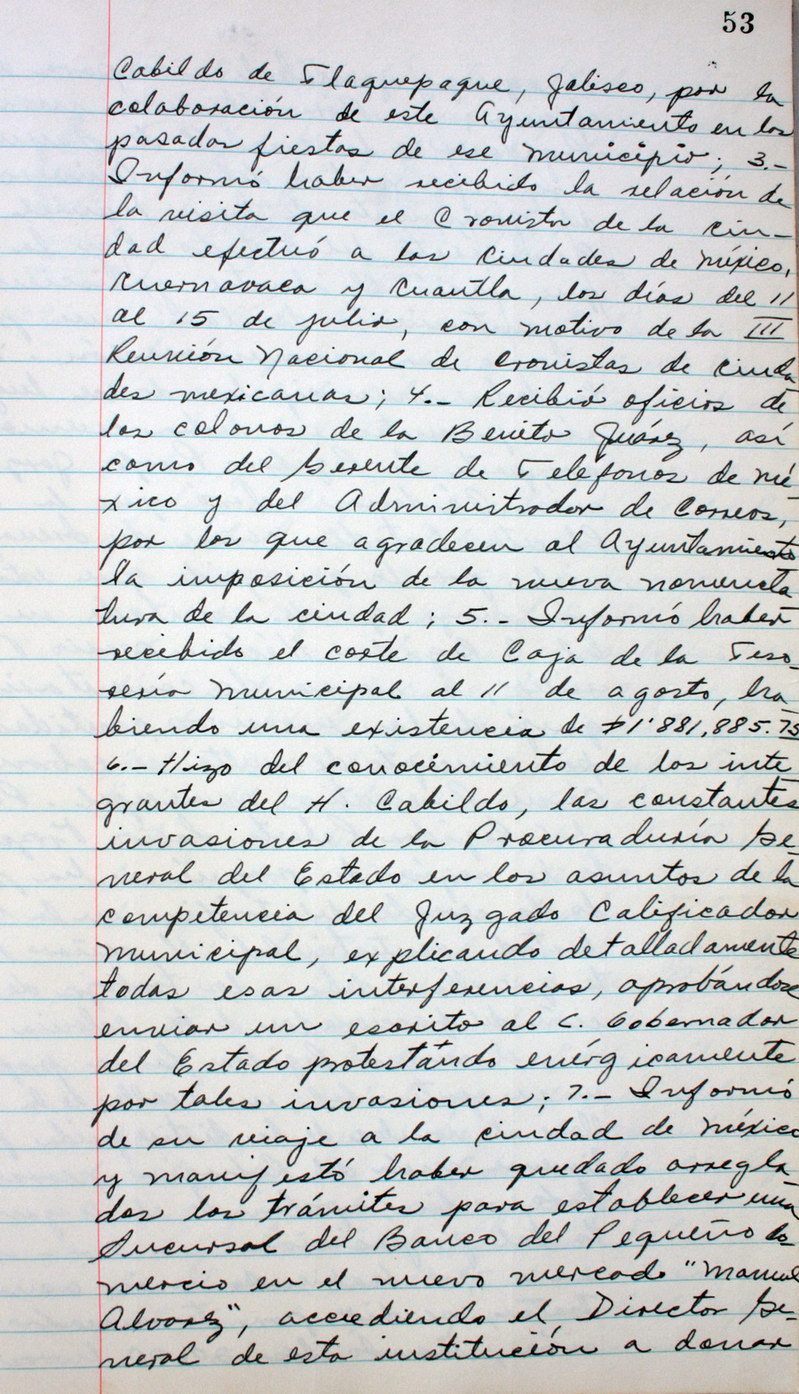 53
Cabildo de Tlaquepaque, Jalisco, por la
colaboración de este Ayuntamiento en las
pasadas fiestas de ese Municipio; 3.-
Informó haber recibido la relación de
la visita que el Cronista de la ciu-
dad efectuó a las ciudades de México,
Cuernavaca y Cuautla, los días del 11
al 15 de julio, con motivo de la III
Reunión Nacional de Cronistas de ciuda
des mexicanas; 4.- Recibió oficios de
los colonos de la Benito Juárez, así
como del Gerente de Teléfonos de Mé-
xico y del Administrador de Correos,
por los que agradecen al Ayuntamiento
la imposición de la nueva nomencla
tura de la ciudad; 5.- Informó haber
recibido el corte de Caja de la Teso-
rería Municipal al 11 de agosto, ha-
biendo una existencia de $1'881,885.75
6.- Hizo del conocimiento de los inte
grantes del H. Cabildo, las constantes
invasiones de la Procuraduría Ge-
neral del Estado en los asuntos de la
competencia del Juzgado Calificador
Municipal, explicando detalladamente
todas esas interferencias, aprobándose
enviar un escrito al C. Gobernador
del Estado protestando enérgicamente
por tales invasiones; 7.- Informó
de su viaje a la ciudad de México
y manifestó haber quedado arregla-
dos los trámites para establecer una
Sucursal del Banco del Pequeño Co-
mercio en el nuevo mercado "Manuel
Alvarez", accediendo el Director Ge-
neral de esta institución a donar